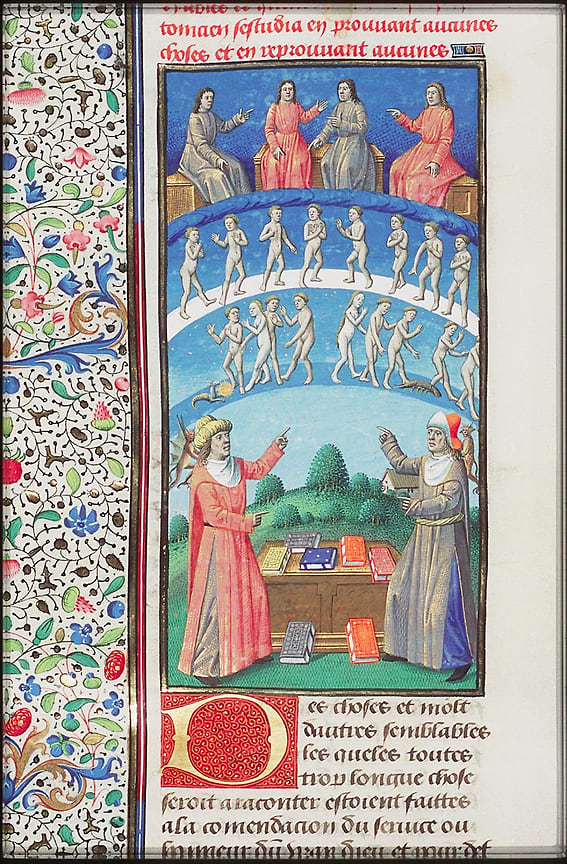 sestudia en prouuant aucunes
choses et en reprouuant aucunes
Des choses et molt
dautres semblables
les queles toutes
trop longue chose
seroit a raconter estoient faittes
a la comendacion du seruice ou
honneur du vray dieu et pour